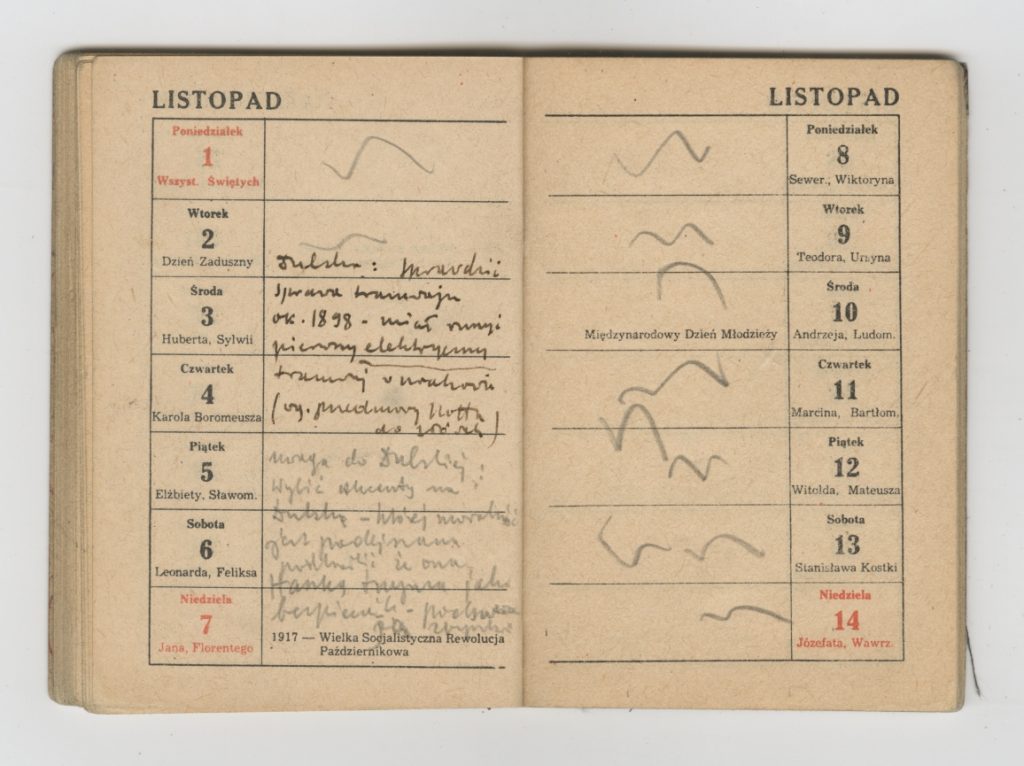 LISTOPAD
Poniedziałek
1
Wszyst. Świętych
Wtorek
2
Dzień Zaduszny
Dulska: sprawdzić
Środa
3
Huberta, Sylwii
sprawa tramwaju
ok. 1898 - miał ruszyć
pierwszy elektryczny
Czwartek
4
Karola Boromeusza
tramwaj w Krakowie
(wg. przedmowy
do
Piątek
5
Elżbiety, Sławom.
uwaga do Dulskiej:
Wybić akcenty na
Sobota
6
Leonarda, Feliksa
Dulską - której moralność
jest podejrzana
podkreślić że ona
Hankę trzyma jako
Niedziela
7
Jana, Florentego
bezpiecznik -
1917 — Wielka Socjalistyczna Rewolucja
Październikowa
LISTOPAD
Poniedziałek
8
Sewer., Wiktoryna
Wtorek
9
Teodora, Ursyna
Środa
10
Międzynarodowy Dzień Młodzieży Andrzeja, Ludom.
Czwartek
11
Marcina, Bartłom.
Piątek
12
Witolda, Mateusza
Sobota
13
Stanisława Kostki
Niedziela
14
Józefata, Wawrz.